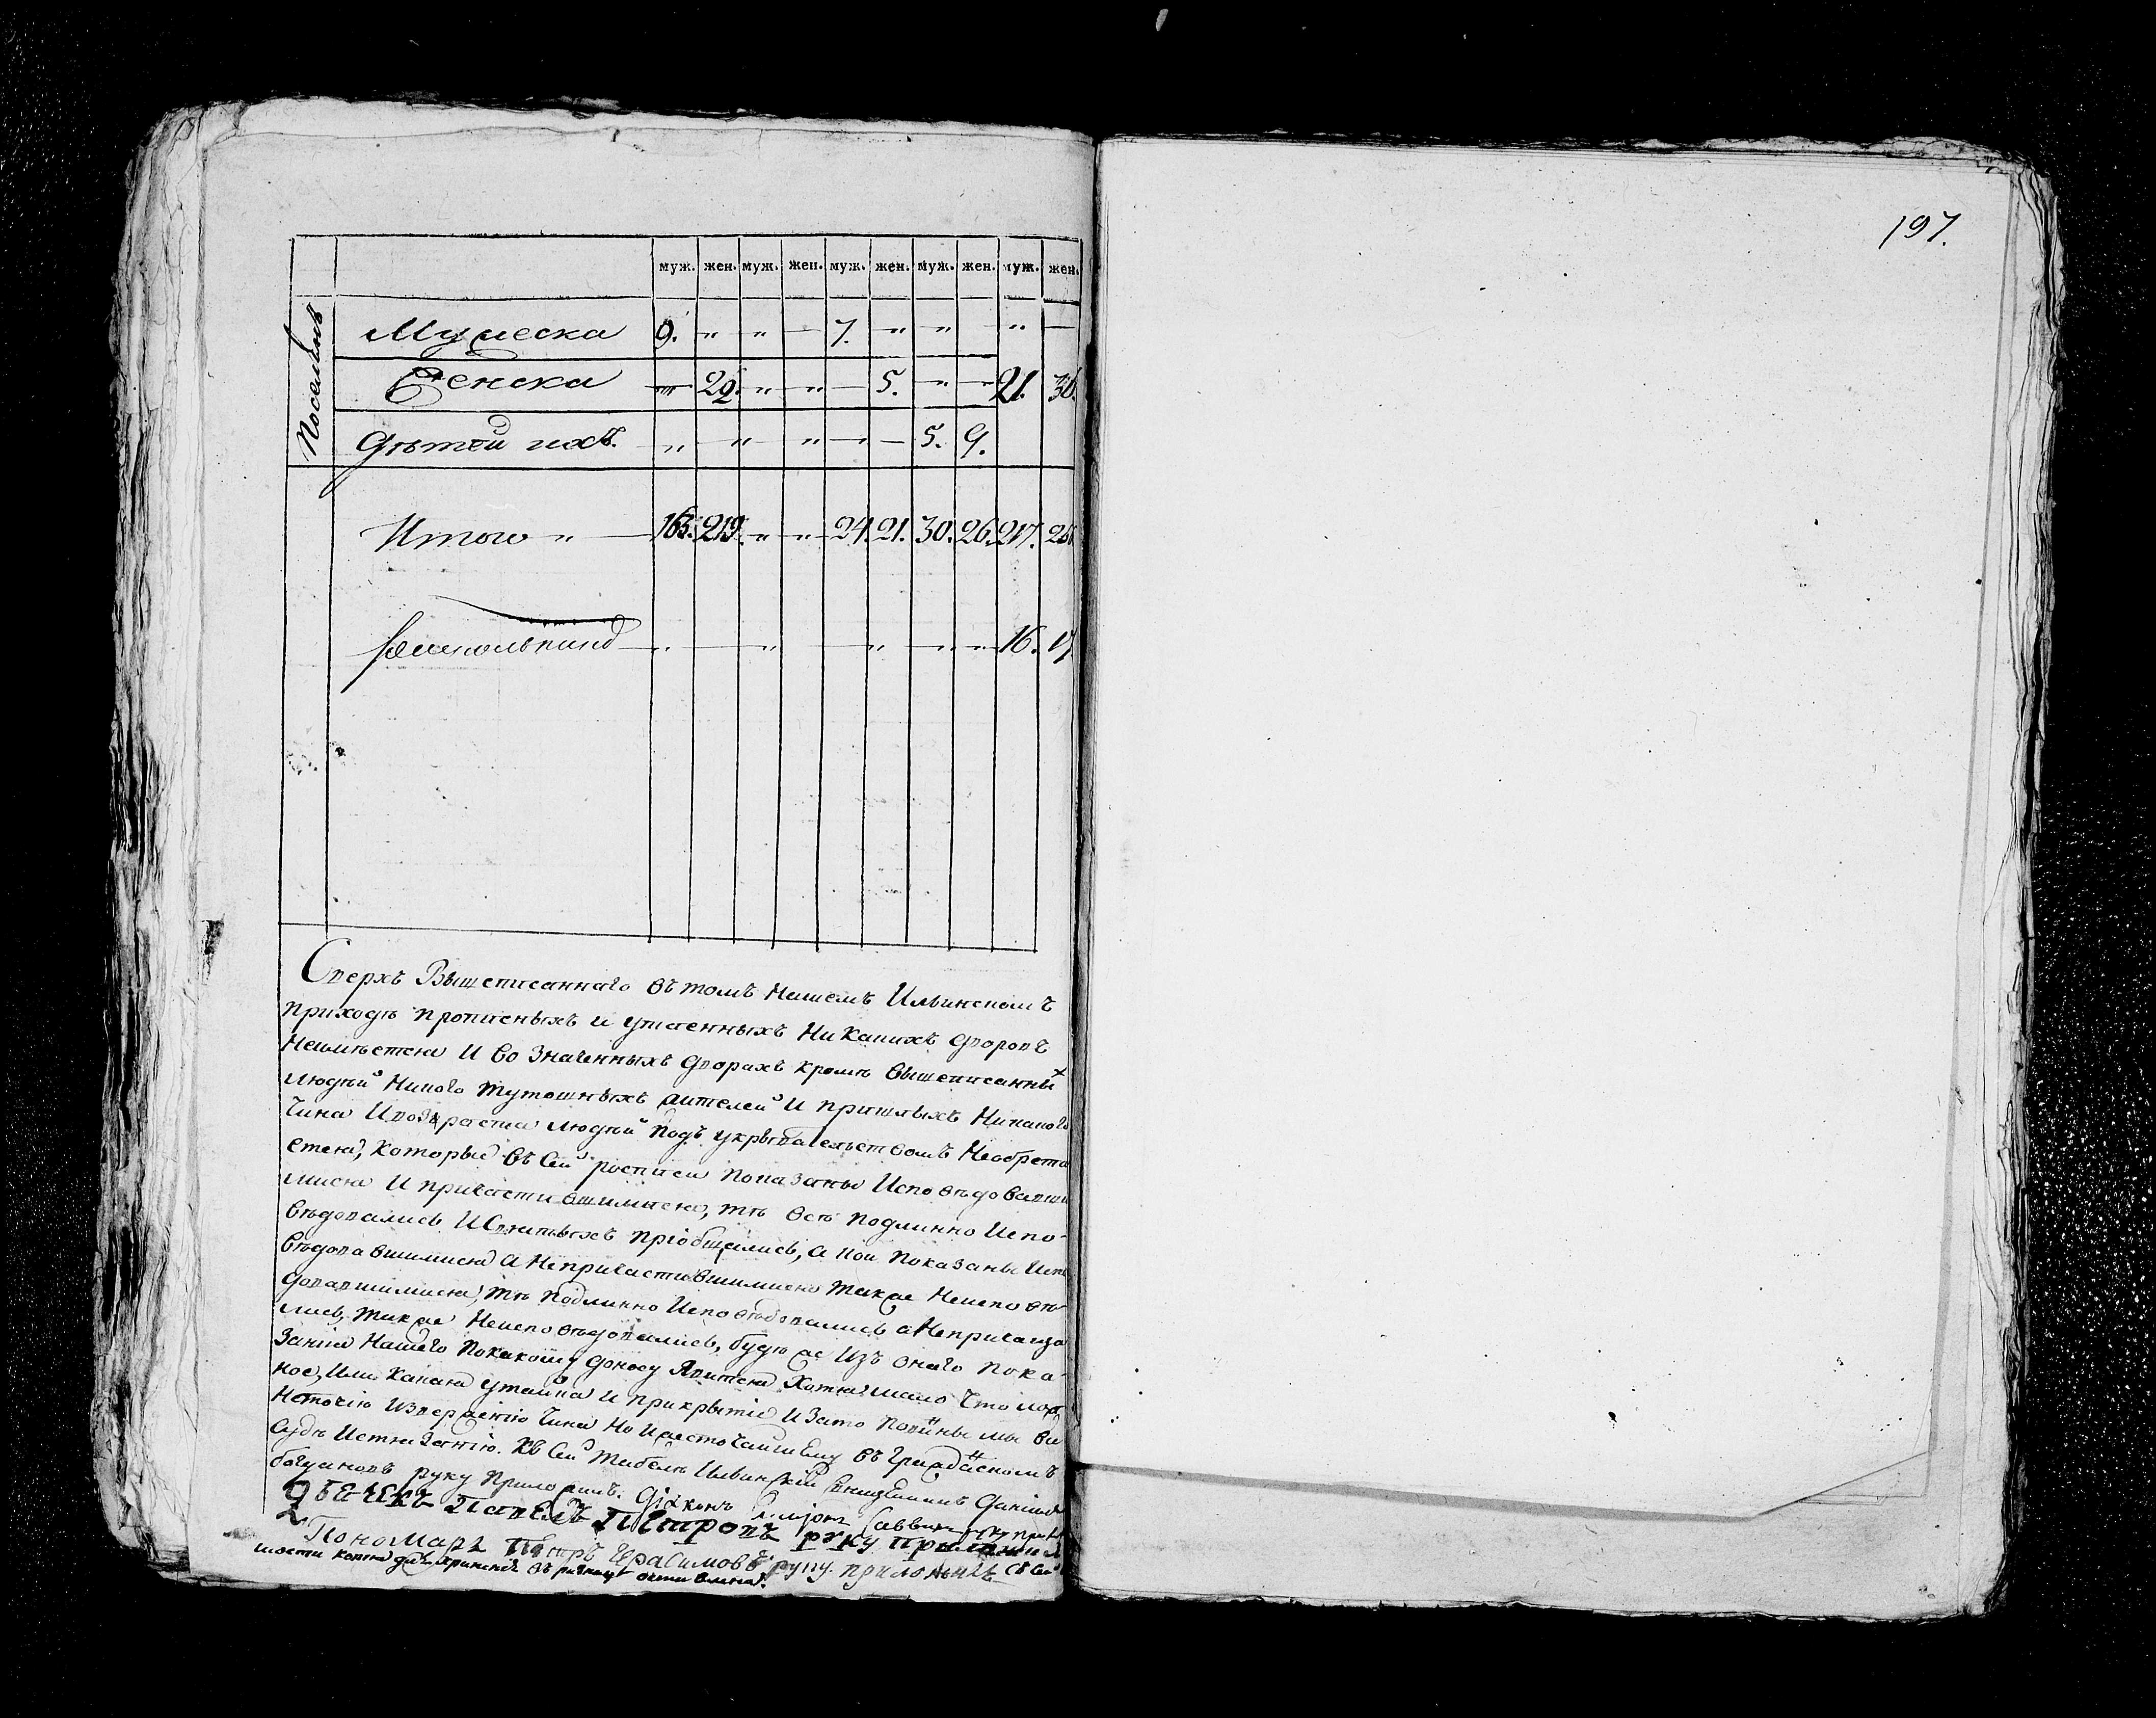 197.
муж. жен. муж. жен. муж. жен. муж. жен. муж. жен.
Поселянъ
Мужеска 9. „ „ — 7. „ „ „ —
Женска „ 29. „ „ — 5. „ — 21.
Дѣтей ихъ. „ „ „ — — 5. 9.
Итого „ — 163. 219. „ „ 24. 21. 30. 26. 217.
„ „ „ „ „ 16. 17
Сверхъ Вышеписаннаго въ томъ Нашемъ Ильинскомъ
приходѣ прописныхъ и утаенныхъ Никакихъ дворовъ
Неимѣется И во Значенныхъ дворахъ кромѣ Вышеписанны х
людѣй Никого тутошныхъ жителей И пришлыхъ Никакого
Чина Ивозраста людѣй подъ укрывательствомъ Необрета
ется, Которые въ Сей росписи Показаны Исповѣдовавши
мися И причастившимися, тѣ всѣ подлинно Испо-
вѣдовались И Святыхъ пріобщались, а Кои Показаны Испо
вѣдовавшимися А Непричастившимися также Неисповѣ-
довавшимися, тѣ Подлинно Исповѣдовались а Непричаща
лись, также Неисповѣдовались, будѣ же Изъ онаго пока-
Занія Нашего Покакому доносу Явится Хотя мало Что лож
ное, Или Какая утайка И прикрытіе И Зато повинны мы
Неточію Изверженію Чина Но И жесточайшему въ Гражданскомъ
Судѣ Истязанію. Къ Сей табелѣ Ильинскій
руку приложилъ. Діаконъ Саввинъ
Дьечекъ Павелъ Петровъ руку приложилъ
Пономарь Петръ Герасимовъ руку приложилъ Съ Сей